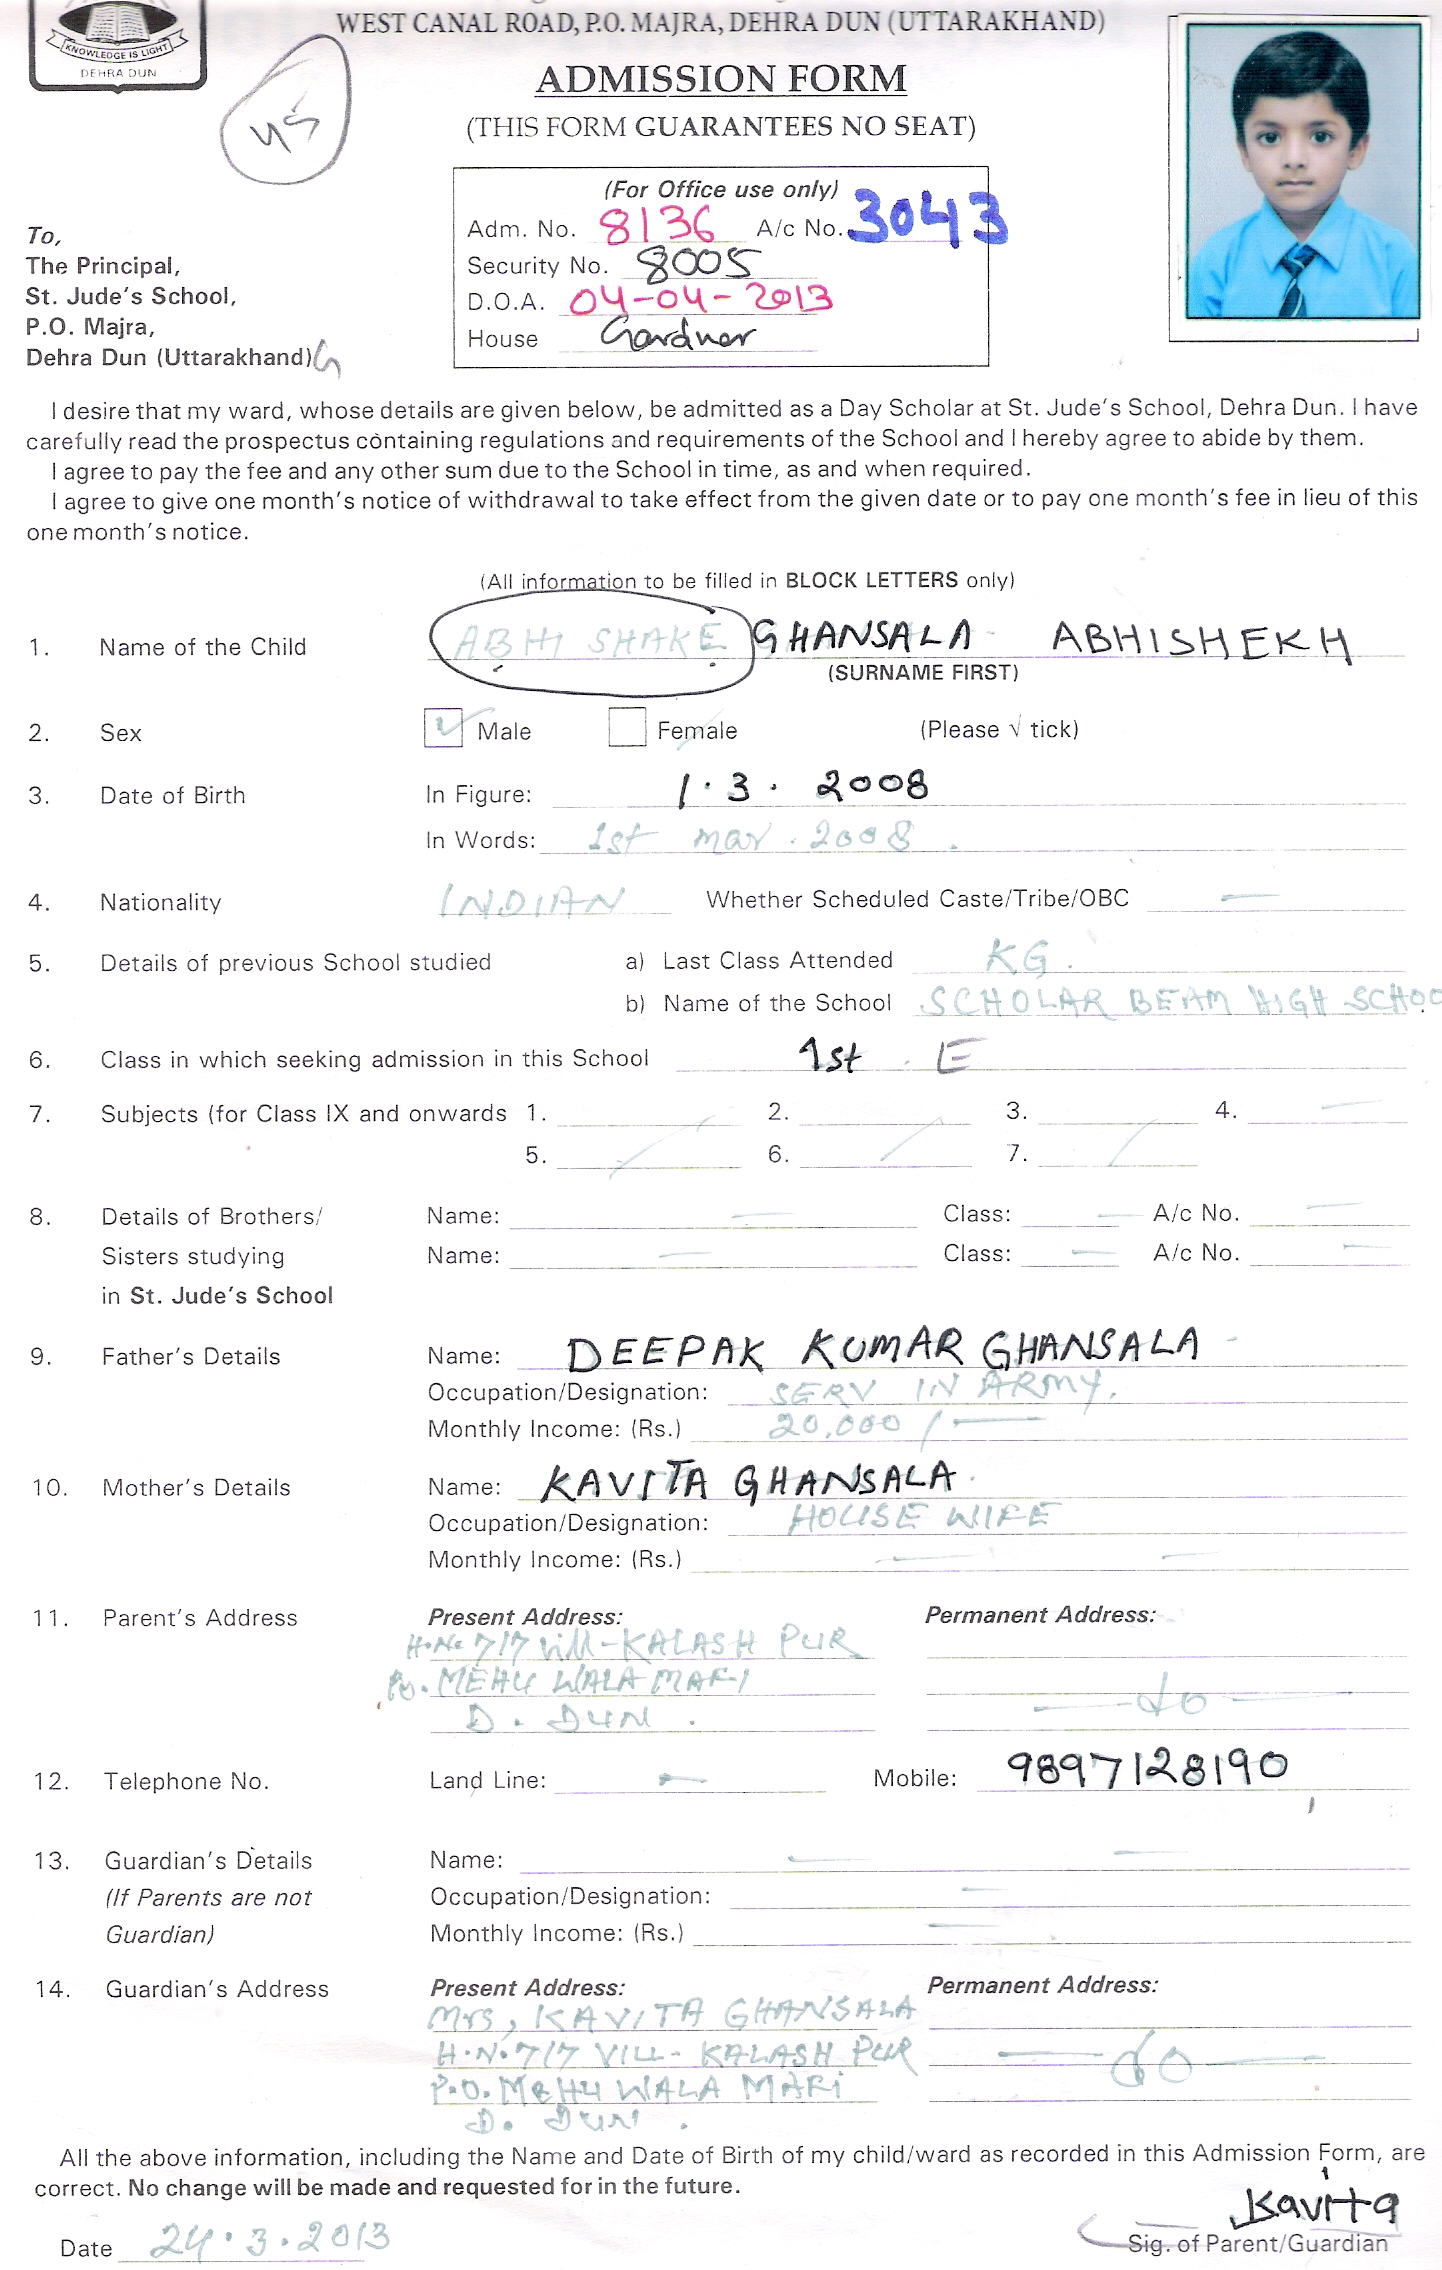 KNOWLEDGE IS LIGHT
DEHRA DUN
WEST CANAL ROAD, P.O. MAJRA, DEHRA DUN (UTTARAKHAND)
ADMISSION FORM
(THIS FORM GUARANTEES NO SEAT)
45
(For Office use only)
Adm. No. 8136 A/c No. 3043
Security No. 8005
D.O.A. 04-04-2013
House Gardner
To,
The Principal,
St. Jude's School,
P.O. Majra,
Dehra Dun (Uttarakhand) G
I desire that my ward, whose details are given below, be admitted as a Day Scholar at St. Jude's School, Dehra Dun. I have
carefully read the prospectus containing regulations and requirements of the School and I hereby agree to abide by them.
I agree to pay the fee and any other sum due to the School in time, as and when required.
I agree to give one month's notice of withdrawal to take effect from the given date or to pay one month's fee in lieu of this
one month's notice.
(All information to be filled in BLOCK LETTERS only)
1. Name of the Child ABHI SHAKE GHANSALA ABHISHEKH
(SURNAME FIRST)
2. Sex ✓ Male Female (Please √ tick)
3. Date of Birth In Figure: 1.3.2008
In Words: 1st mar. 2008.
4. Nationality INDIAN Whether Scheduled Caste/Tribe/OBC —
5. Details of previous School studied a) Last Class Attended KG.
b) Name of the School SCHOLAR BEAM HIGH SCHOO
6. Class in which seeking admission in this School 1st E
7. Subjects (for Class IX and onwards 1. 2. 3. 4. —
5. 6. 7.
8. Details of Brothers/ Name: — Class: — A/c No. —
Sisters studying Name: — Class: — A/c No. —
in St. Jude's School
9. Father's Details Name: DEEPAK KUMAR GHANSALA
Occupation/Designation: SERV IN ARMY.
Monthly Income: (Rs.) 20,000/—
10. Mother's Details Name: KAVITA GHANSALA
Occupation/Designation: HOUSE WIFE
Monthly Income: (Rs.) — —
11. Parent's Address Present Address: Permanent Address:
H.No 717 vill-KALASH PUR
Po. MEHU WALA MAFI —do—
D. DUN.
12. Telephone No. Land Line: — Mobile: 9897128190
13. Guardian's Details Name: — —
(If Parents are not Occupation/Designation: —
Guardian) Monthly Income: (Rs.) —
14. Guardian's Address Present Address: Permanent Address:
Mrs, KAVITA GHANSALA
H.N.717 VILL- KALASH PUR —do—
P.O. MEHU WALA MAFI
D. DUN.
All the above information, including the Name and Date of Birth of my child/ward as recorded in this Admission Form, are
correct. No change will be made and requested for in the future.
Kavita
Date 24.3.2013 Sig. of Parent/Guardian